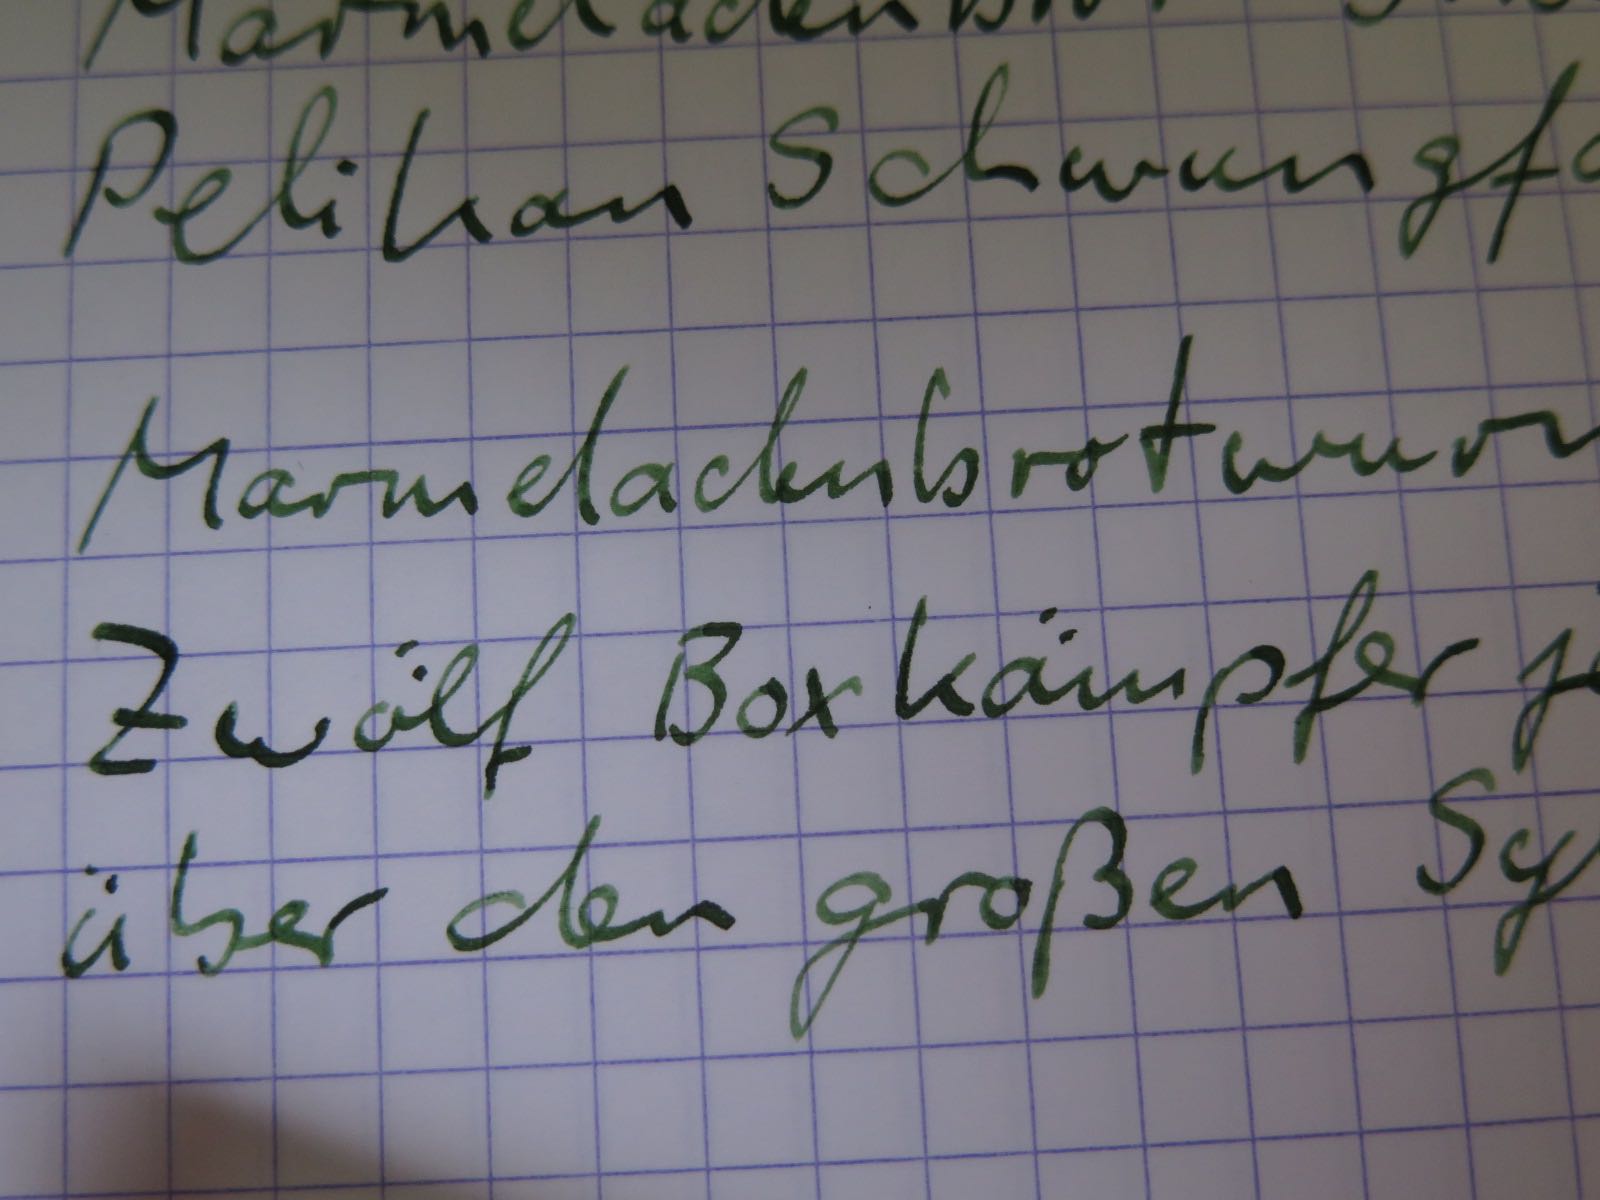 Marmeladenbrot
Pelikan Schwungf
Marmeladenbrotwurm
Zwölf Boxkämpfer j
über den großen Sy